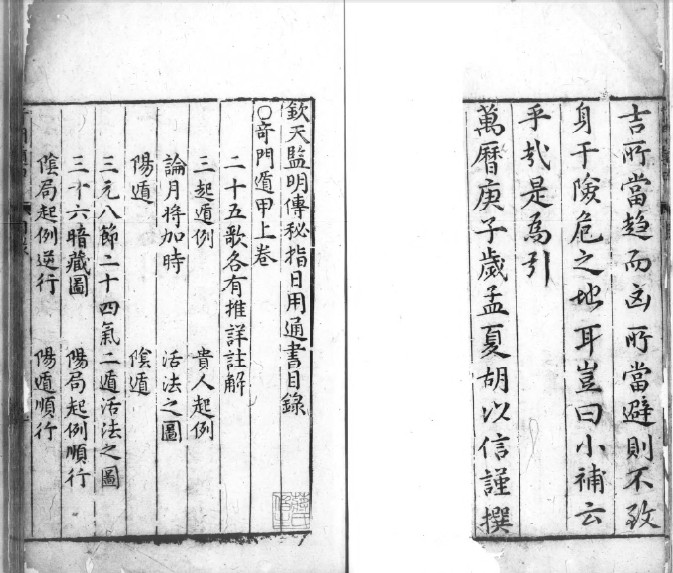 吉所當趋而凶所當避則不致
身于險危之地耳豈曰小補云
乎㢤是爲引
萬曆庚子歲孟夏胡以信謹撰
欽天監明傳秘指日用通書目錄
〇竒門遁甲上卷
二十五歌各有推詳註解
三起遁例 貴人起例
論月將加時 活法之圖
陽遁 陰遁
三元八節二十四氣二遁活法之圖
三十六暗藏圖 陽局起例順行
陰局起例逆行 陽遁順行